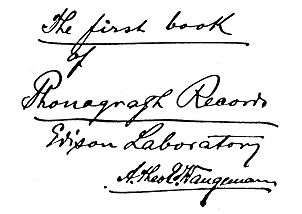 The first book
of
Phonograph Records
Edison Laboratory
A. Theo E. Wangemann